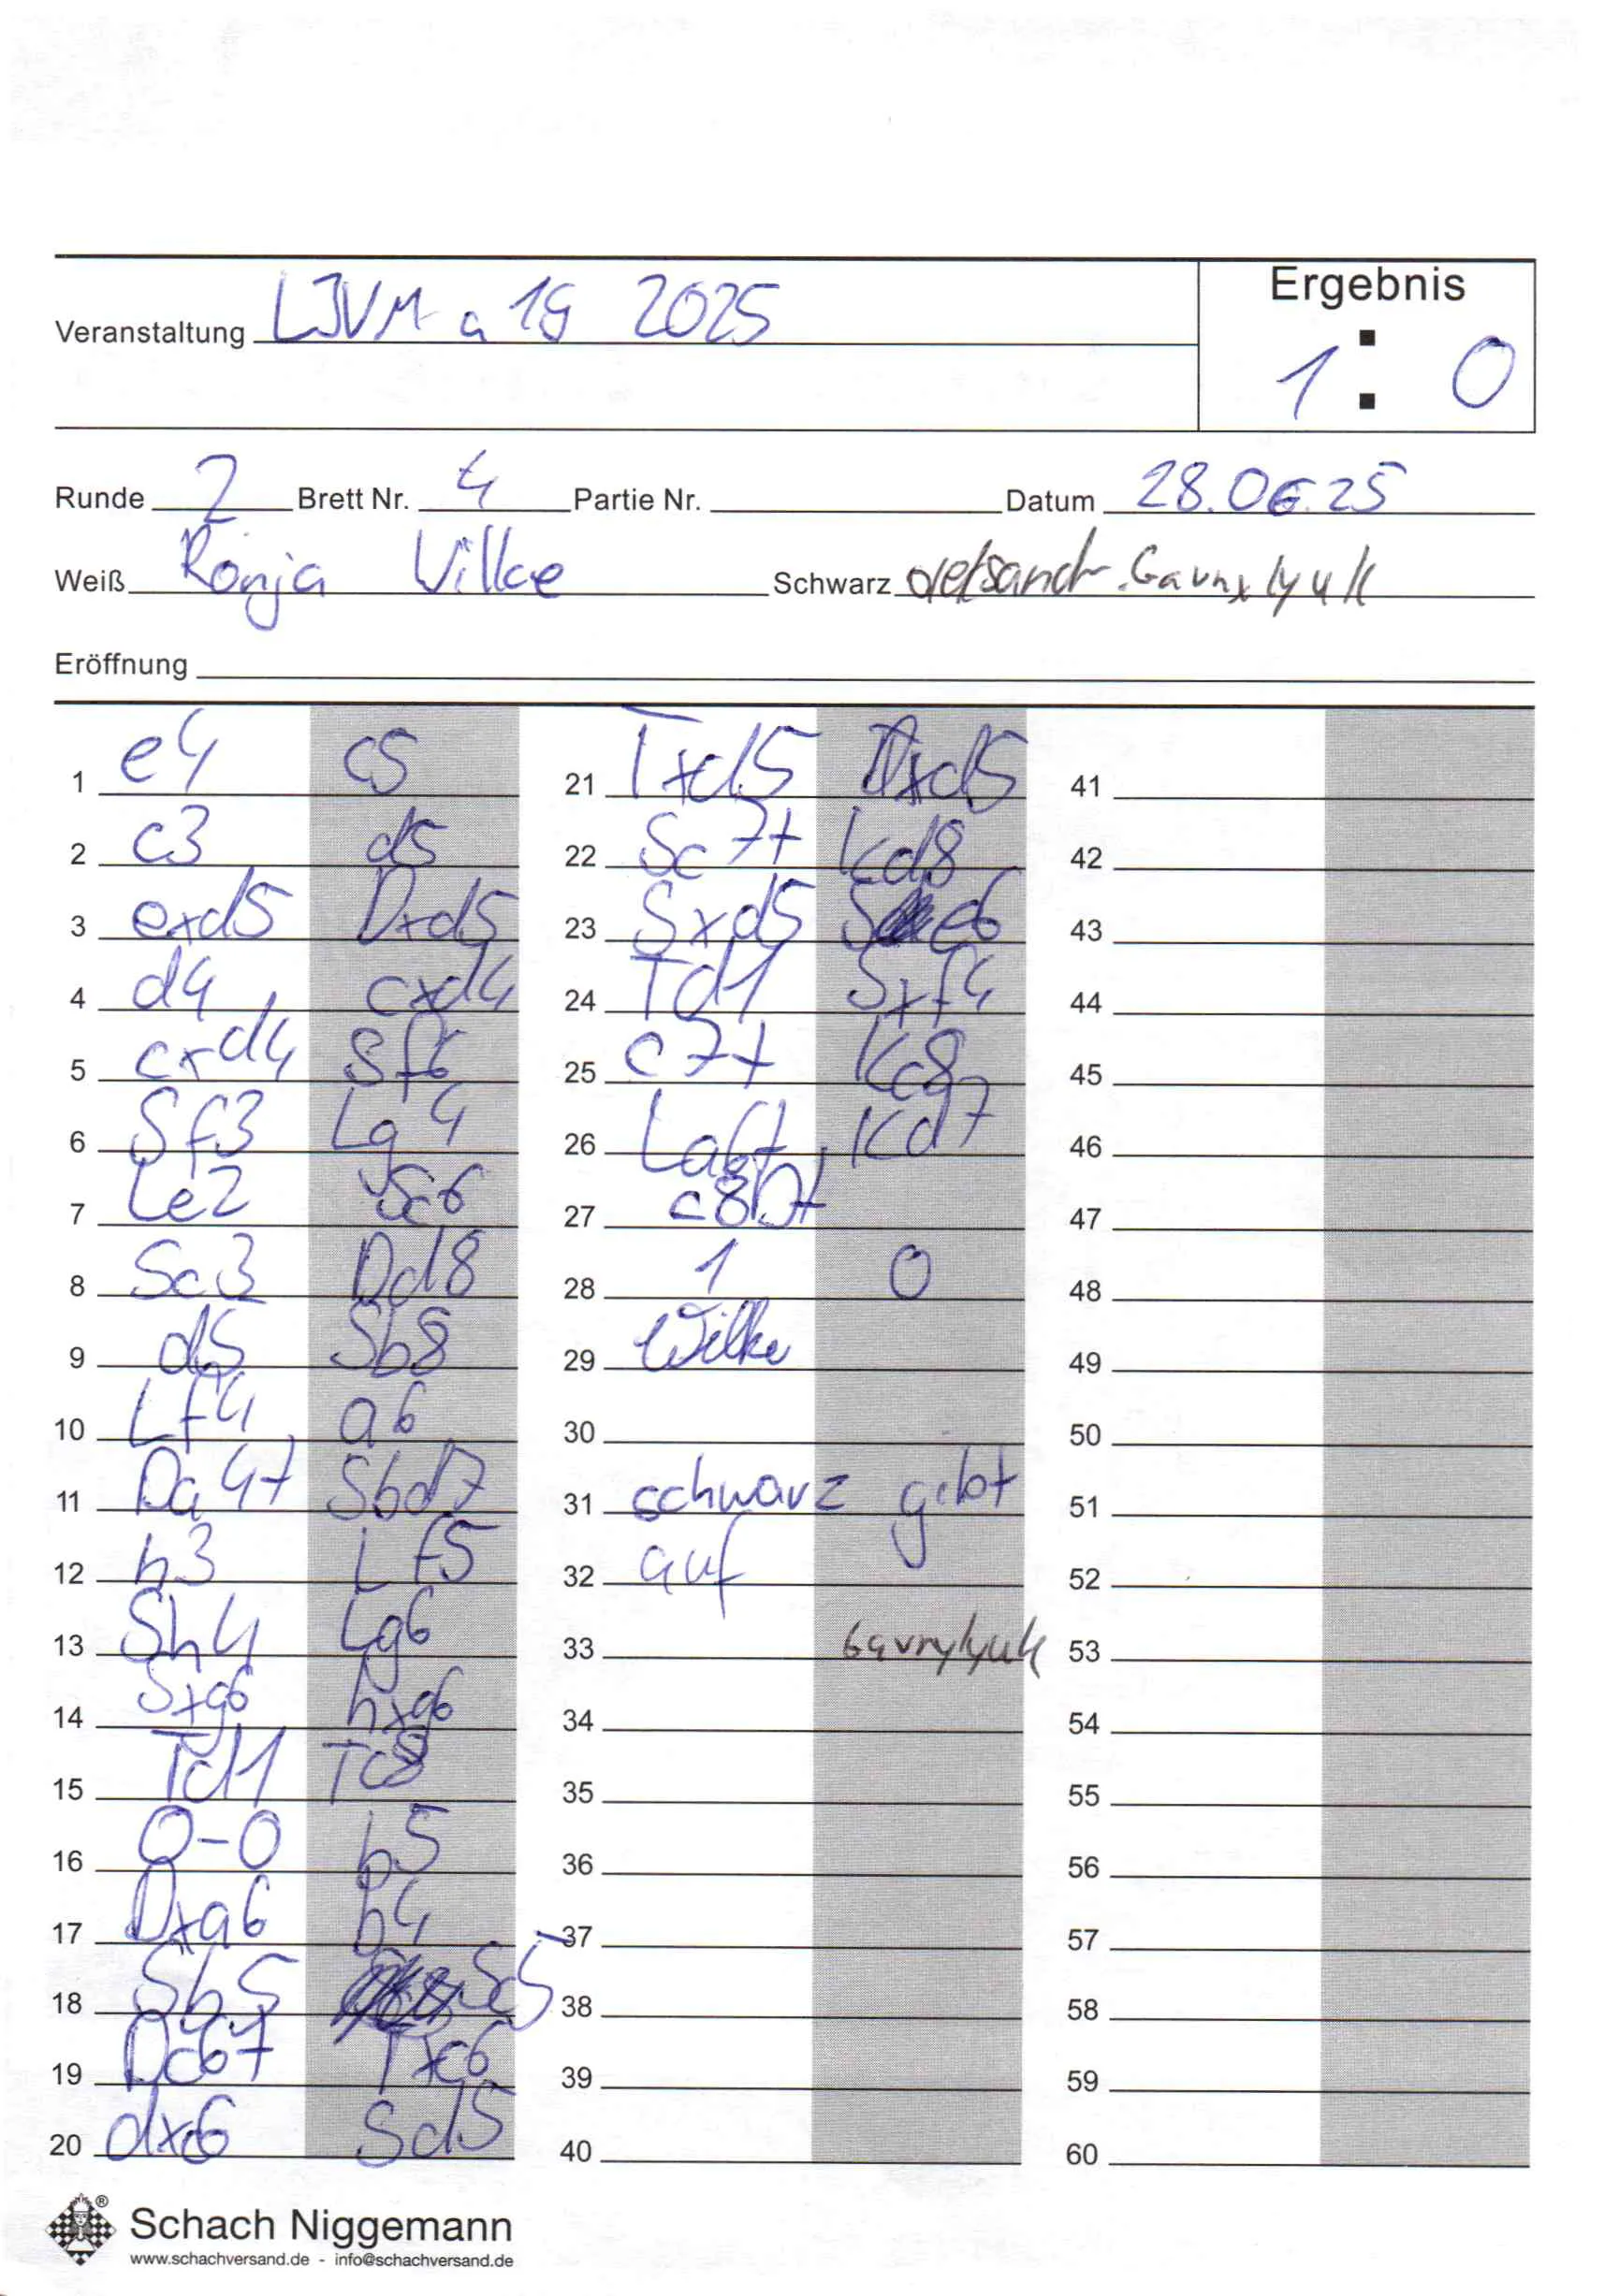 Ergebnis
Veranstaltung LJVM a 19 2025
1 : 0
Runde 2 Brett Nr. 4 Partie Nr. Datum 28.06.25
Weiß Ronja Wilke Schwarz
Eröffnung
1 e4 c5 21 Txd5 Dxd5 41
2 c3 d5 22 Sc7+ Kd8 42
3 exd5 Dxd5 23 Sxd5 Se6 43
4 d4 cxd4 24 Td1 Sxf4 44
5 cxd4 Sf6 25 c7+ Kc8 45
6 Sf3 Lg4 26 La6+ Kd7 46
7 Le2 Sc6 27 c8D+ 47
8 Sc3 Dd8 28 1 0 48
9 d5 Sb8 29 Wilke 49
10 Lf4 a6 30 50
11 Da4+ Sbd7 31 schwarz gibt 51
12 h3 Lf5 32 auf 52
13 Sh4 Lg6 33 Gavrylyuk 53
14 Sxg6 hxg6 34 54
15 Td1 Tc8 35 55
16 0-0 b5 36 56
17 Dxa6 b4 37 57
18 Sb5 Sc5 38 58
19 Dc6+ Txc6 39 59
20 dxc6 Sd5 40 60
Schach Niggemann
www.schachversand.de - info@schachversand.de